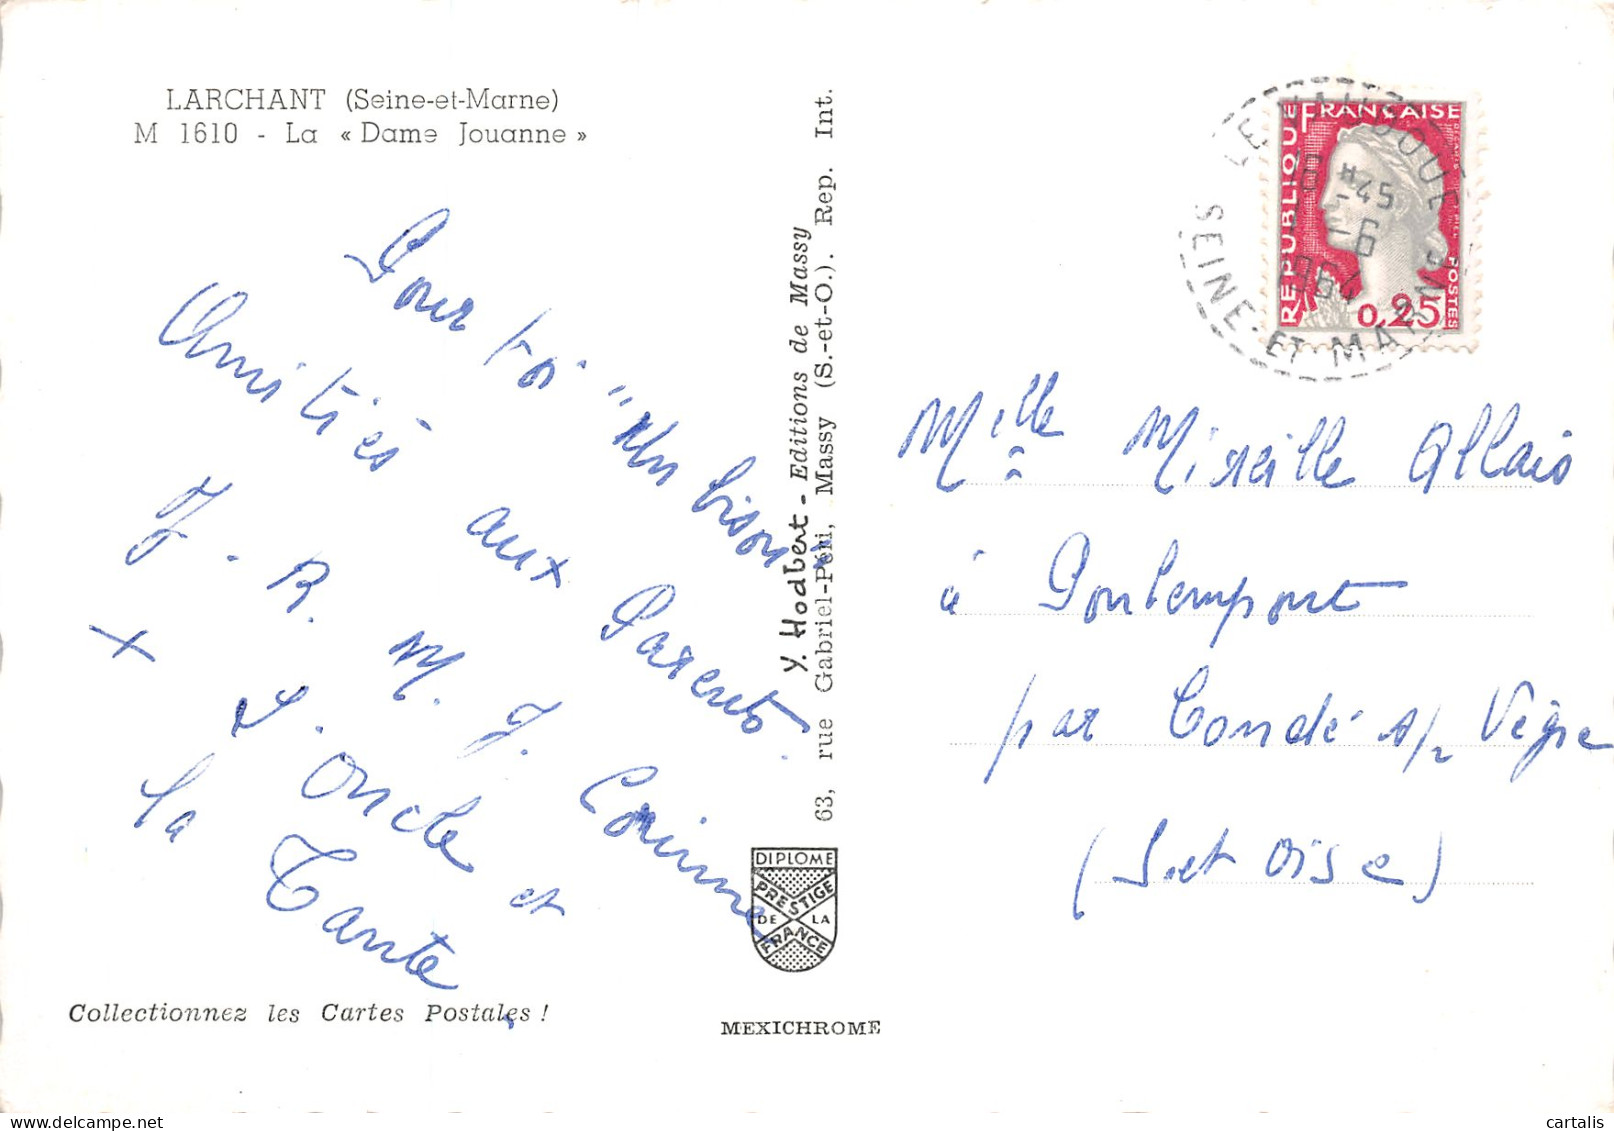 LARCHANT (Seine-et-Marne)
M 1610 - La « Dame Jouanne »
Pour toi "un bison"
Amitiés aux Parents.
J. R. M. J. Corinne
X L'Oncle et
la Tante
Collectionnez les Cartes Postales !
Y. Hodbert - Editions de Massy
63, rue Gabriel-Péri, Massy (S.-et-O.). Rep. Int.
DIPLOME
PRESTIGE
DE LA
FRANCE
MEXICHROME
RÉPUBLIQUE FRANÇAISE
POSTES
0,25
LE VAUDOUE
18 H45
-6
1964
SEINE-ET-MARNE
Melle Mireille Allais
à
par Condé s/ Vègre
(S.et Oise)
cartalis